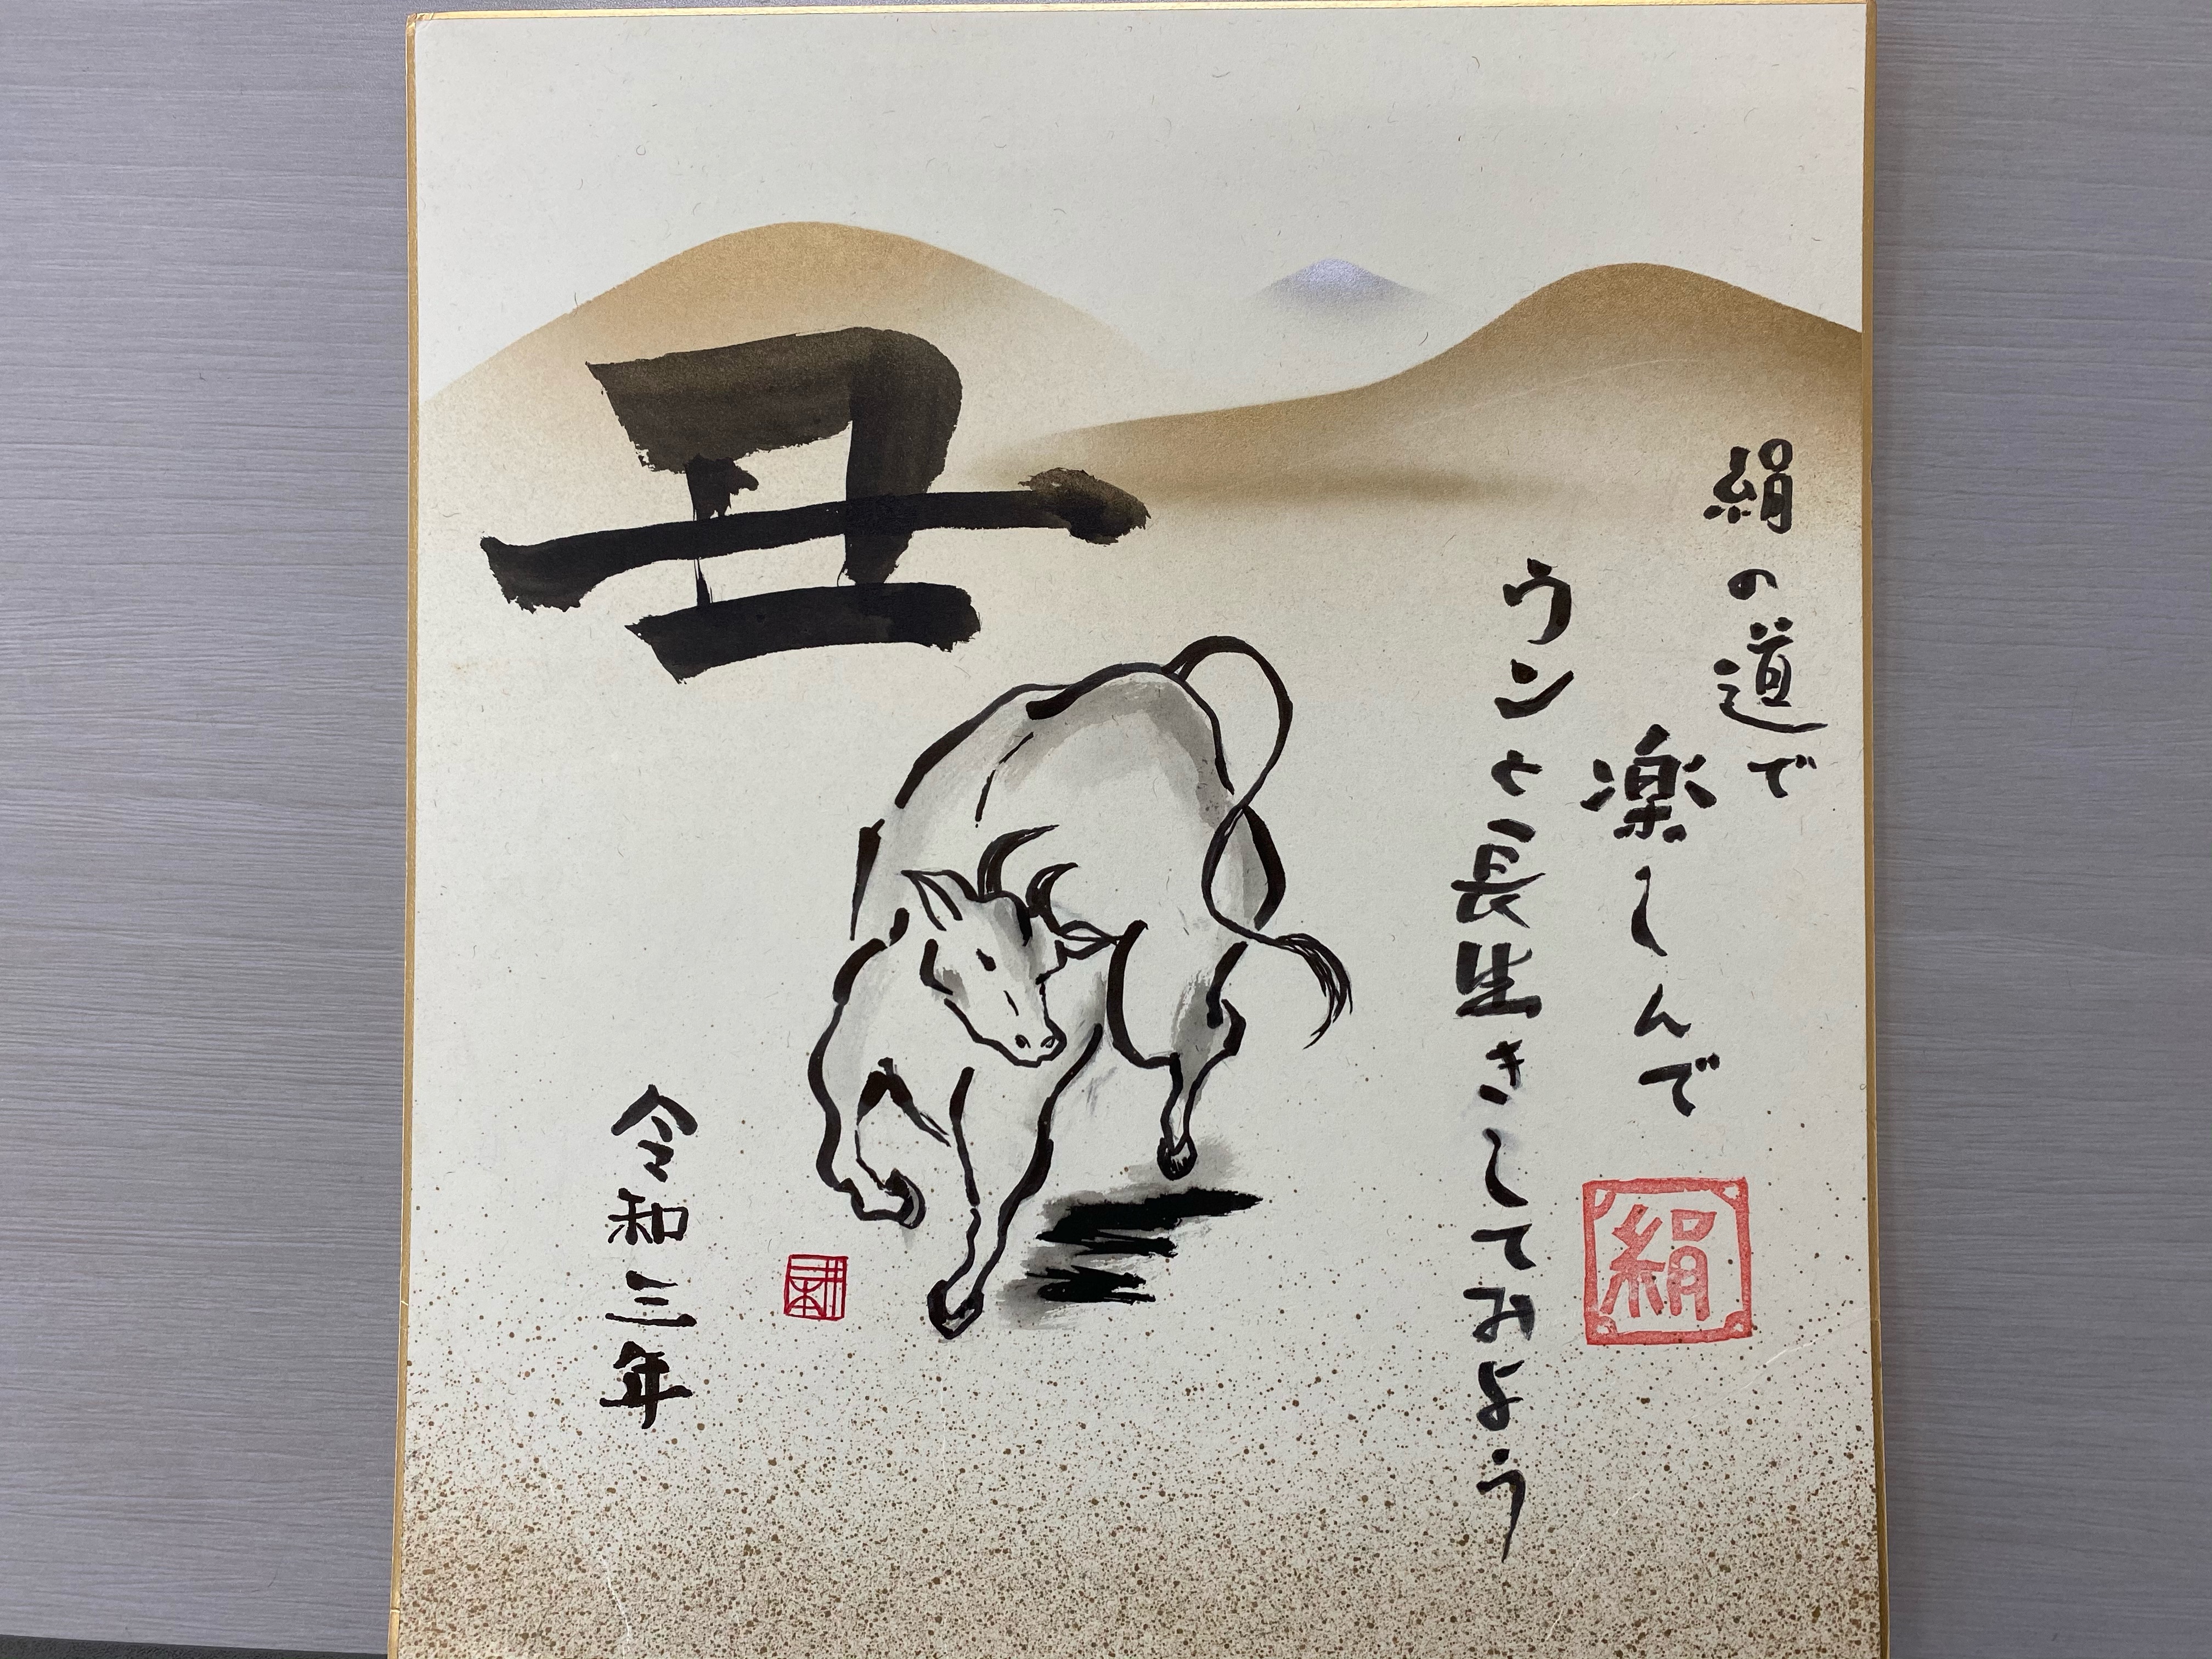 絹の道で
楽しんで
ウンと長生きしておよう
絹
丑
令和三年